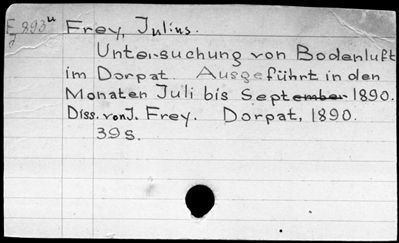 E 893 u Frey, Julius.
g
Untersuchung von Bodenluft
im Dorpat. Ausgeführt in den
Monaten Juli bis September 1890.
Diss. von J. Frey. Dorpat, 1890.
39 S.